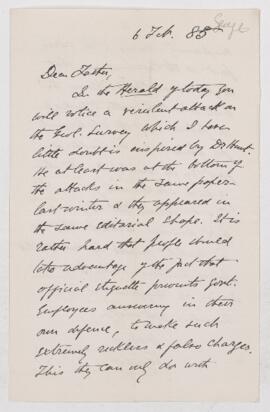 6 Feb. 85
Dear Foster,
In the Herald of today you
will notice a virulent attack on
the Geol. Survey which I have
little doubt is inspired by Dr Hunt.
He at least was at the bottom of
the attacks in the same paper
last winter & they appeared in
the same editorial shape. It is
rather hard that people should
take advantage of the fact that
official etiquette prevents Govt.
Employees answering in their
own defence, to make such
extremely reckless & false charges.
This they can only do with